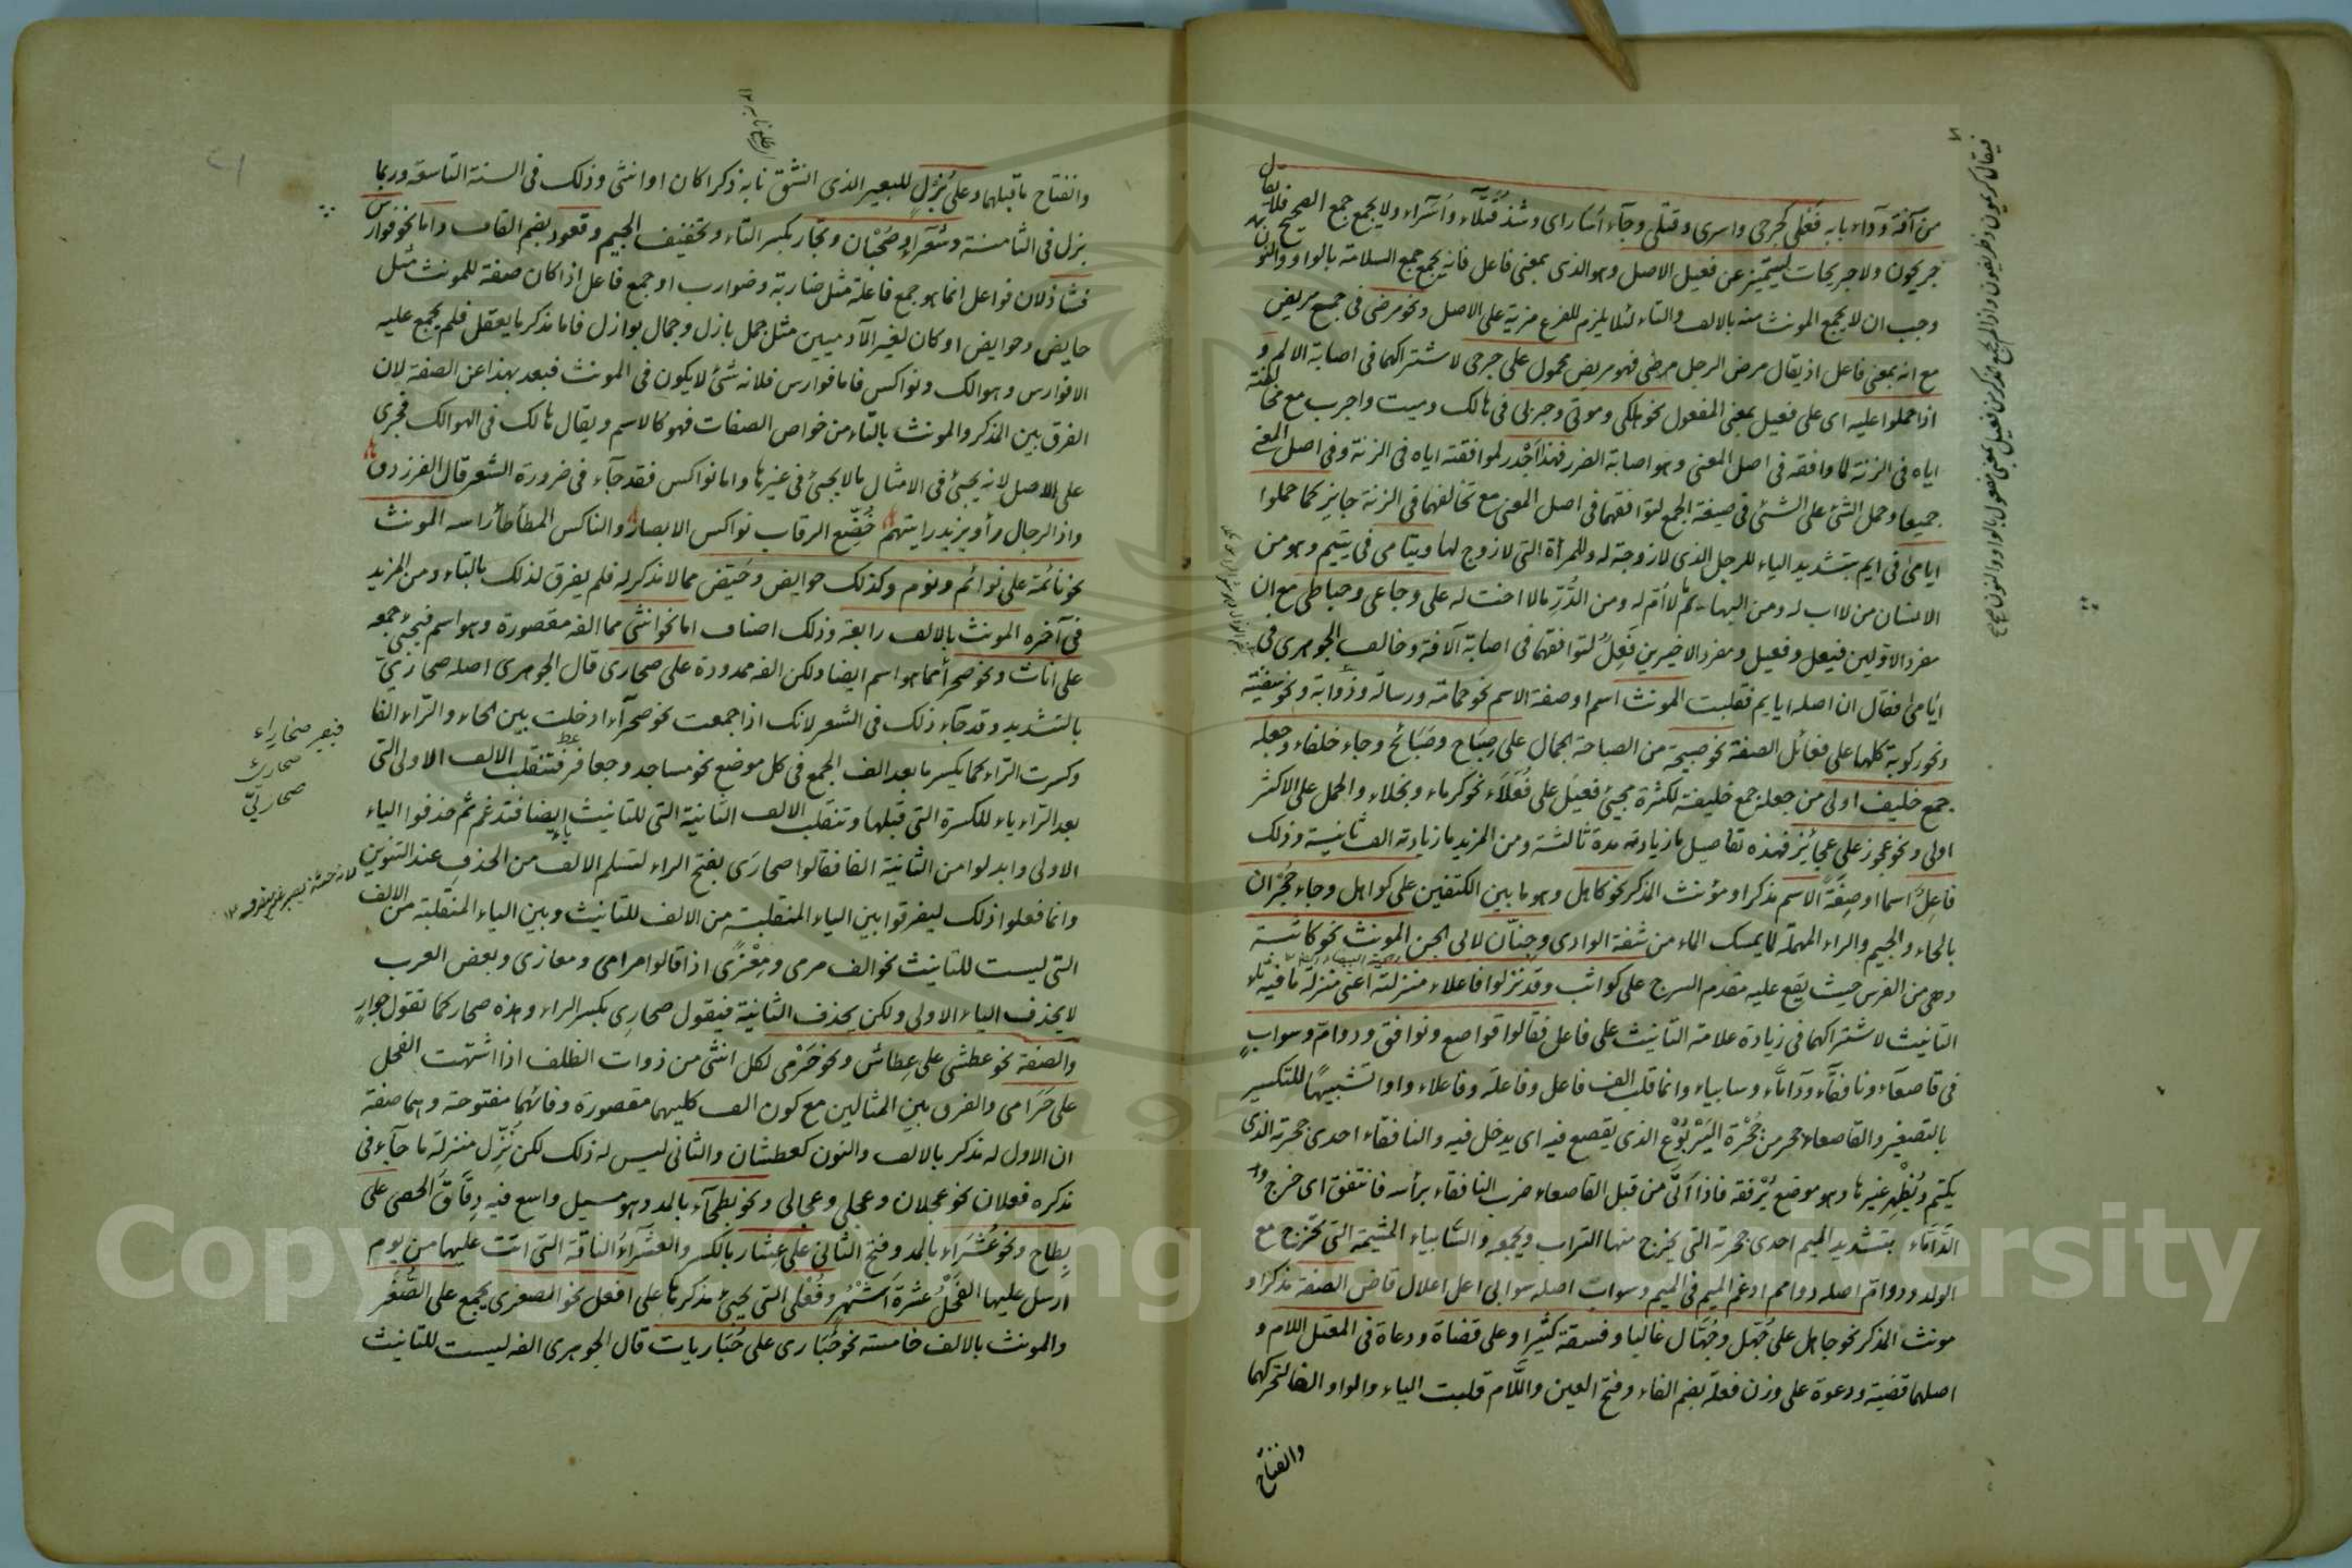 من آفة وداء بابه فَعْلى كجرحى واسرى وقتلى وجاء اُسارى وشذ قُتَلَاء واُسَراء ولا يجمع جمع الصحيح فلا يقال
جريحون ولا جريحات ليتميز عن فعيل الاصل وهو الذى بمعنى فاعل فانه يجمع جمع السلامة بالواو والنون
وجب ان لا يجمع المونث منه بالالف والتاء لئلا يلزم للفرع مزية على الاصل ونحو مرضى فى جمع مريض
مع انه بمعنى فاعل اذ يقال مرض الرجل مرضى فهو مريض محمول على جرحى لاشتراكهما فى اصابة الالم و
اذا حملوا عليه اى على فعيل بمعنى المفعول نحو هلكى وموتى وجربى فى هالك وميت واجرب مع مخالفته
اياه فى الزنة لما وافقه فى اصل المعنى وهو اصابة الضرر فهذا اَجْدر لموافقته اياه فى الزنة وفى اصل المعنى
جميعا وحمل الشئ على الشئ فى صيغة الجمع لتوافقهما فى اصل المعنى مع تخالفهما فى الزنة جايز كما حملوا
ايامى فى ايم بتشديد الياء للرجل الذى لا زوجة له وللمرأة التى لا زوج لها ويتامى فى يتيم وهو من
الانسان من لا اب له ومن البهائم ما لا اُمّ له ومن الدُّرّ ما لا اخت له على وجاعى وحباطى مع ان
مفرد الاوّلين فيعل وفعيل ومفرد الاخيرين فَعِلٌ لتوافقهما فى اصابة الآفة وخالف الجوهرى فى
ايامى فقال ان اصله ايايم فقلبت المونث اسم او صفة الاسم نحو حمامة ورسالة وذُؤابة ونحو سفينة
ونحو ركوبة كلها على فعائل الصفة نحو صبيحة من الصباحة الجمال على صِبَاح وصَبَائح وجاء خلفاء وجعله
جمع خليف اولى من جعله جمع خليفة لكثرة مجيئ فعيل على فُعَلَاء نحو كرماء وبخلاء والحمل على الاكثر
اولى ونحو عجوز على عجائز فهذه تفاصيل ما زيادته مدة ثالثة ومن المزيد ما زيادته الف ثانية وذلك
فاعِلٌ اسما او صِفَةً الاسم مذكرا ومؤنث المذكر نحو كاهل وهو ما بين الكتفين على كواهل وجاء حُجْزان
بالحاء والجيم والراء المهملة لما يمسك الماء من شفة الوادى وجِنّان لابى الجن المونث نحو كاثبة
وهى من الفرس حيث يقع عليه مقدم السرج على كواثب وقد نزلوا فاعلاء منزلته اعنى منزلة ما فيه تاء
التانيث لاشتراكهما فى زيادة علامة التانيث على فاعل فقالوا قواصع ونوافق ودوامّ وسوابٍ
فى قاصعاء ونافقاء ودامّاء وسابياء وانما قلب الف فاعل وفاعلة وفاعلاء واوا تشبيها للتكسير
بالتصغير والقاصعاء جحر من جُحْرة اليَرْبُوع الذى يقصع فيه اى يدخل فيه والنافقاء احدى جحرته الذى
يكتم ويُظْهر غيرها وهو موضع يُرْفقه فاذا اَتَى من قبل القاصعاء ضرب النافقاء برأسه فانتفق اى خرج
الدَّامّاء بتشديد الميم احدى جحرته التى يخرج منها التراب ويجمعه والسَّابياء المشيمة التى تخرج مع
الولد ودوامّ اصله دوامم ادغم الميم فى الميم وسوابٍ اصله سوابى اعل اعلال قاض الصفة مذكرا و
مونث المذكر نحو جاهل على جُهّل وجُهّال غالبا وفسقة كثيرا وعلى قضاة ودعاة فى المعتل اللام و
اصلها قضية ودعوة على وزن فعلة بضم الفاء وفتح العين واللّام قلبت الياء والواو الفا لتحركهما
وانفتاح
وانفتاح ما قبلهما وعلى بُزْلٍ للبعير الذى انشق نابه ذكرا كان او انثى وذلك فى السنة التاسعة وربما
بزل فى الثامنة وشُعَراء وصُحْبان وتجار بكسر التاء وتخفيف الجيم وقعود بضم القاف واما نحو فوارس
فشاذ لان فواعل انما هو جمع فاعلة مثل ضاربة وضوارب او جمع فاعل اذا كان صفة للمونث مثل
حايض وحوايض او كان لغير الآدميين مثل جمل بازل وجمال بوازل فاما مذكر ما يعقل فلم يجمع عليه
الا فوارس وهوالك ونواكس فاما فوارس فلانه شئ لا يكون فى المونث فبعد بهذا عن الصفة لان
الفرق بين المذكر والمونث بالتاء من خواص الصفات فهو كالاسم ويقال هالك فى الهوالك فجرى
على الاصل لانه يجيئ فى الامثال ما لا يجيئ فى غيرها واما نواكس فقد جاء فى ضرورة الشعر قال الفرزدق
واذا الرجال رأوا يزيد رايتهم خُضّع الرقاب نواكس الابصار والناكس المطأطأ راسه المونث
نحو نائمة على نوائم ونوم وكذلك حوايض وحُيّض مما لا مذكر له فلم يفرق لذلك بالتاء ومن المزيد
فى آخره المونث بالالف رابعة وذلك اصناف اما نحو انثى مما الفه مقصورة وهو اسم فيجيئ جمعه
على اناث ونحو صحرا مما هو اسم ايضا ولكن الفه ممدودة على صحارى قال الجوهرى اصله صحاريّ
بالتشديد وقد جاء ذلك فى الشعر لانك اذا جمعت نحو صحراء ادخلت بين الحاء والراء الفا
وكسرت الراء كما يكسر ما بعد الف الجمع فى كل موضع نحو مساجد وجعافر فتنقلب الالف الاولى التى
بعد الراء ياء للكسرة التى قبلها وتنقلب الالف الثانية التى للتانيث ياء ايضا فتدغم ثم حذفوا الياء
الاولى وابدلوا من الثانية الفا فقالوا صحارَى بفتح الراء لتسلم الالف من الحذف عند التنوين
وانما فعلوا ذلك ليفرقوا بين الياء المنقلبة من الالف للتانيث وبين الياء المنقلبة من الالف
التى ليست للتانيث نحو الف مرمى ومِعْزًى اذا قالوا مرامى ومعازى وبعض العرب
لا يحذف الياء الاولى ولكن يحذف الثانية فيقول صحارِى بكسر الراء وهذه صحار كما تقول جوارٍ
والصفة نحو عطشى على عِطاش ونحو حَرْمى لكل انثى من ذوات الظلف اذا اشتهت الفحل
على حَرَامى والفرق بين المثالين مع كون الف كليهما مقصورة وفائهما مفتوحة وهما صفة
ان الاول له مذكر بالالف والنون كعطشان والثانى ليس له ذلك لكن نُزّل منزلة ما جاء فى
مذكره فعلان نحو عجلان وعجلى وعجالى ونحو بطحاء بالمد وهو مسيل واسع فيه دقاق الحصى على
بِطاح ونحو عُشَراء بالمد وفتح الثانى على عِشار بالكسر والعشَراء الناقة التى اتت عليها من يوم
ارسل عليها الفَحْلُ عشرة اَشْهُرٍ وفُعْلى التى يجيئ مذكرها على افعل نحو الصغرى يجمع على الصُّغَر
والمونث بالالف خامسة نحو حُبَارى على حُبَاريات قال الجوهرى الفه ليست للتانيث
فيصير صحاريّ
صحارىّ
Copyright © King Saud University